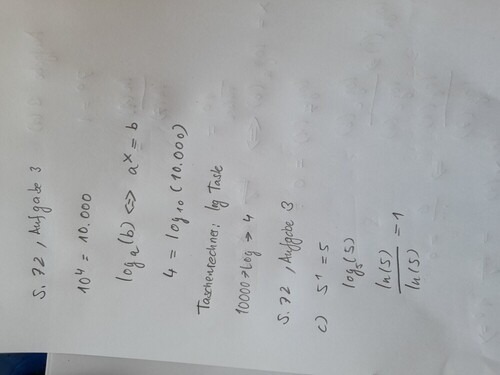 S. 72, Aufgabe 3
10⁴ = 10.000
logₐ(b) <=> aˣ = b
4 = log₁₀ (10.000)
Taschenrechner: log Taste
10000 → log → 4
S. 72, Aufgabe 3
c) 5¹ = 5
log₅(5)
ln(5) / ln(5) = 1